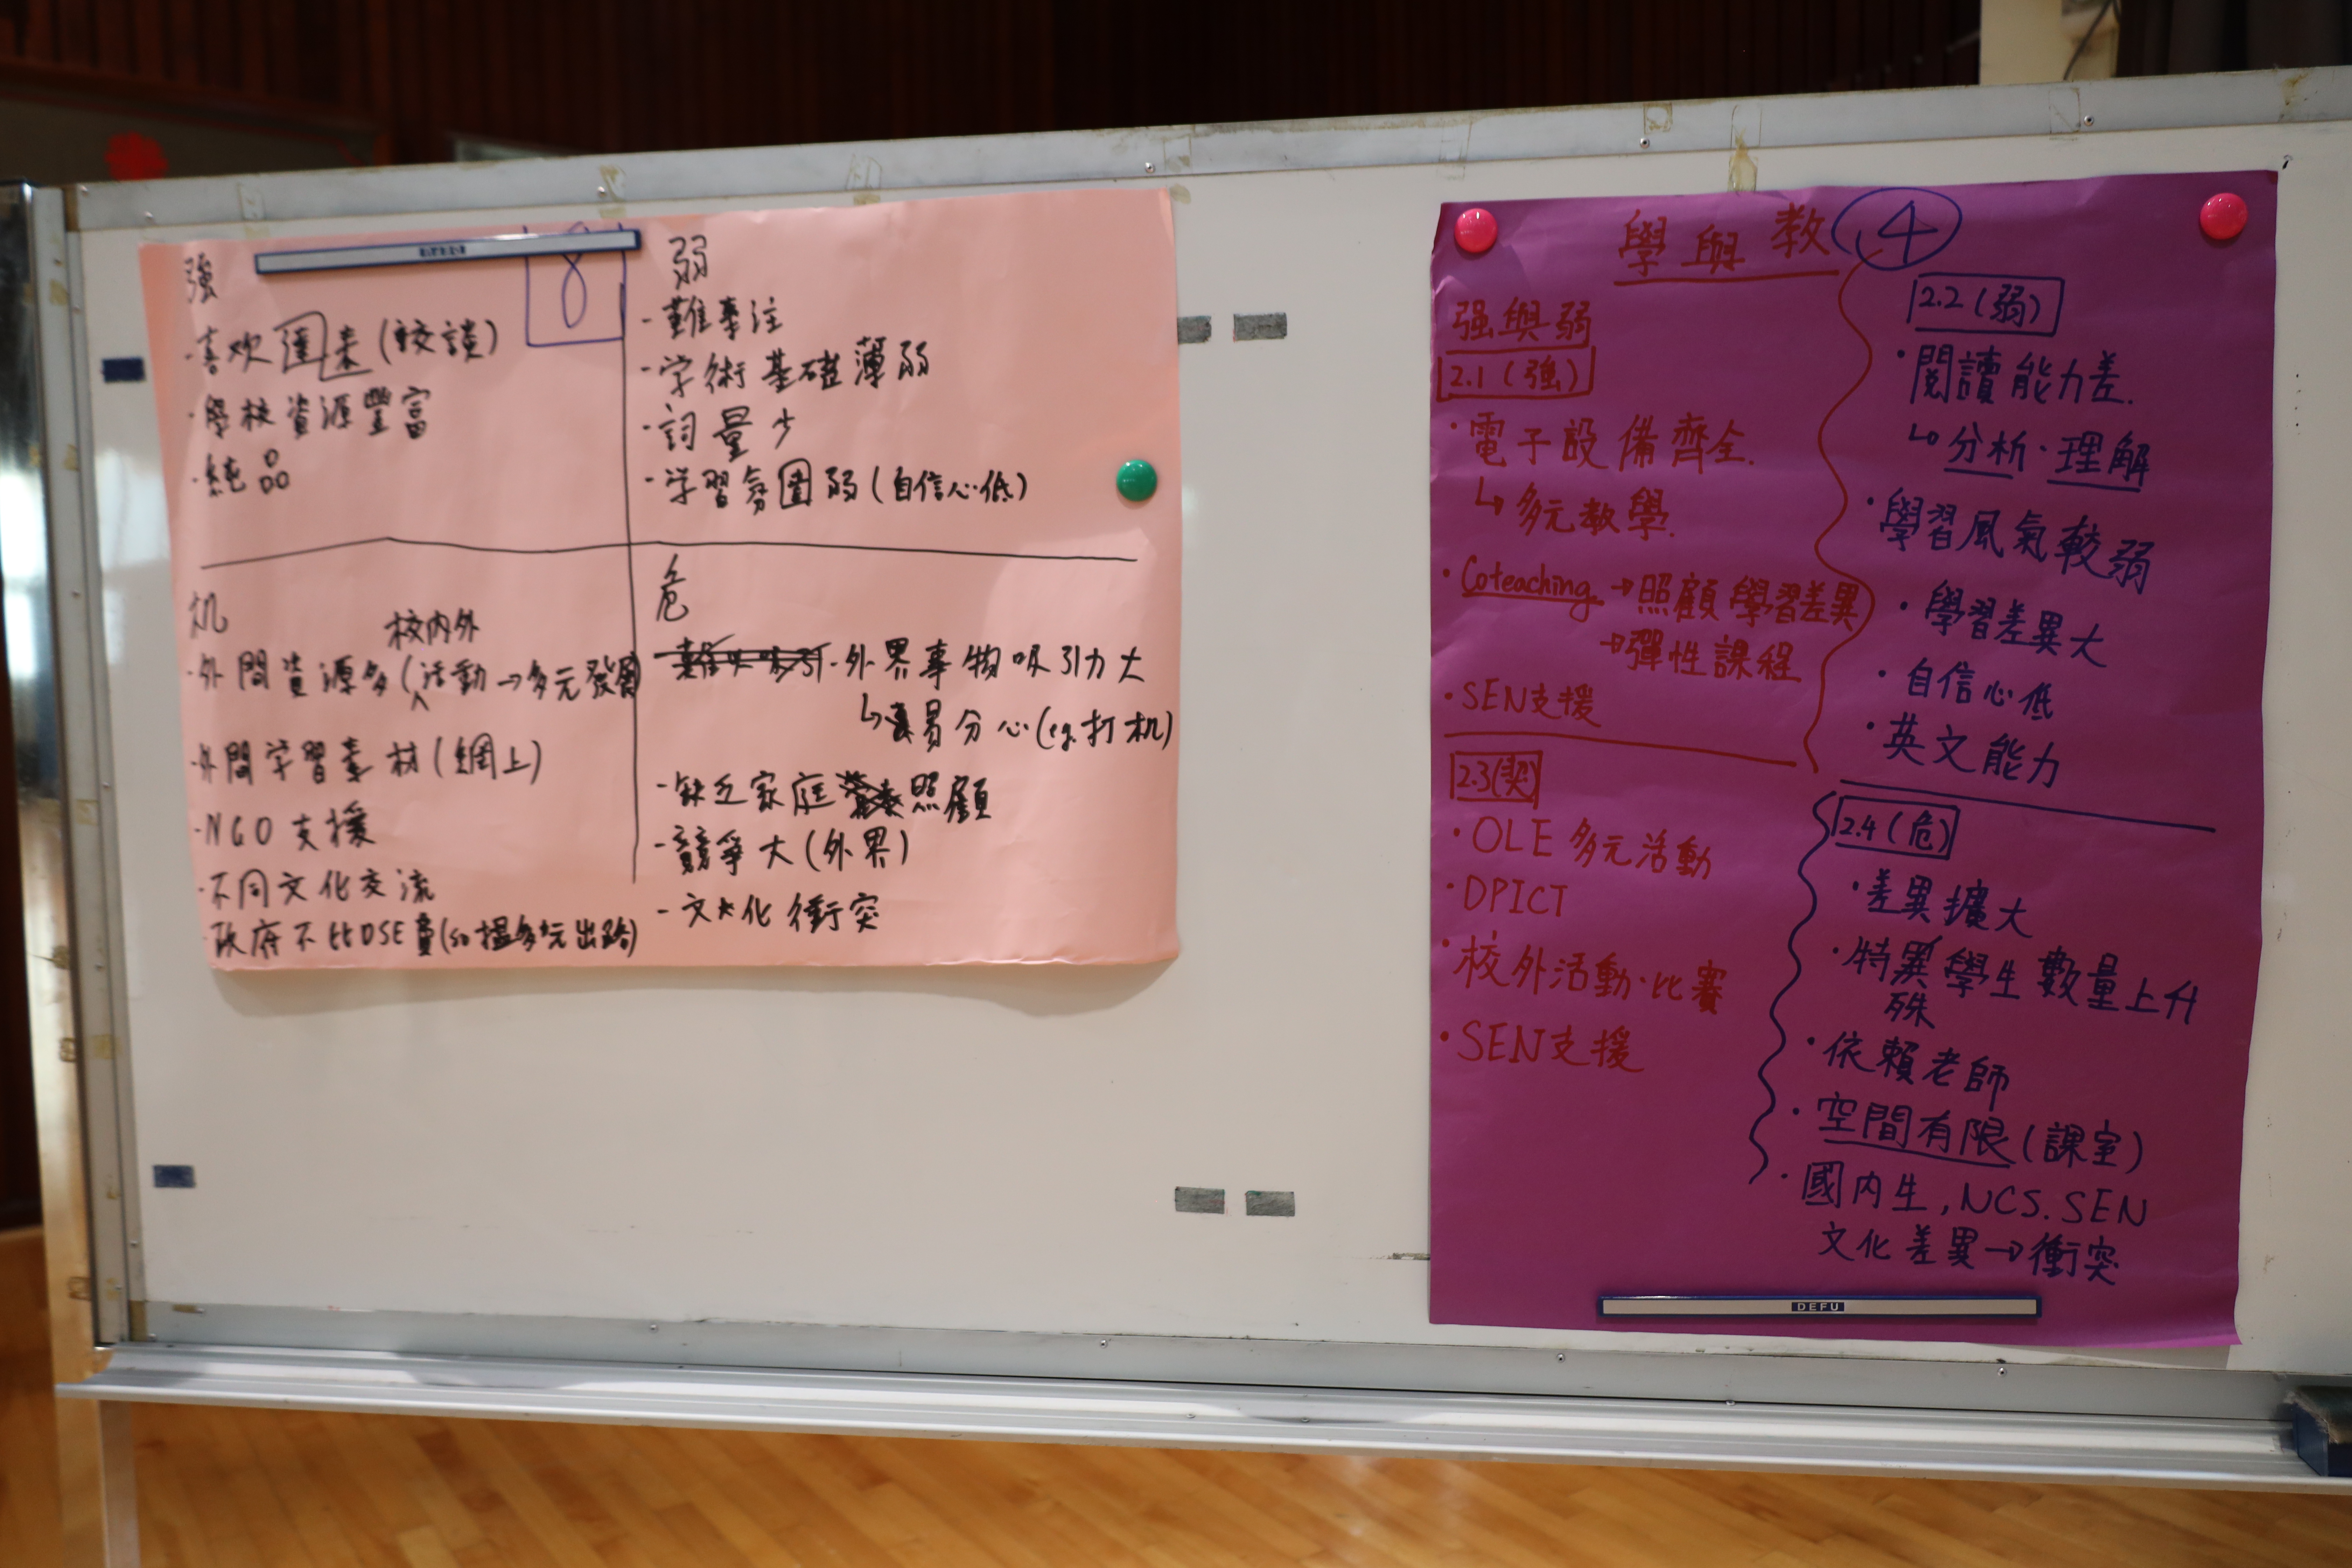 8
強
- 喜欢(較談)
- 學校資源豐富
- 純品
弱
- 難專注
- 学術基礎薄弱
- 詞量少
- 学習氛圍弱(自信心低)
机
校內外
- 外間資源多(活動→多元發展)
- 外間学習素材(網上)
- NGO支援
- 不同文化交流
- 政府不比DSE (so 搵多元出路)
危
- 外界事物吸引力大
↳ 易分心(eg.打机)
- 缺乏家庭照顧
- 競爭大(外界)
- 文化衝突
學與教 4
强與弱
2.1 (強)
· 電子設備齊全.
↳ 多元教學.
· Coteaching → 照顧學習差異
→ 彈性課程
· SEN支援
2.2 (弱)
· 閱讀能力差.
↳ 分析·理解
· 學習風氣較弱
· 學習差異大
· 自信心低
· 英文能力
2.3(契)
· OLE 多元活動
· DPICT
· 校外活動·比賽
· SEN支援
2.4 (危)
· 差異擴大
· 特殊學生數量上升
· 依賴老師
· 空間有限(課室)
· 國內生, NCS. SEN
文化差異→衝突
DEFU